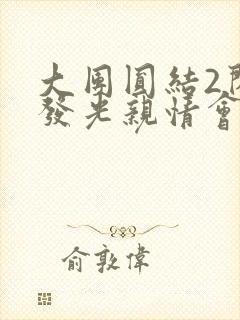 大團圓結2
發光親情會
俞敦偉